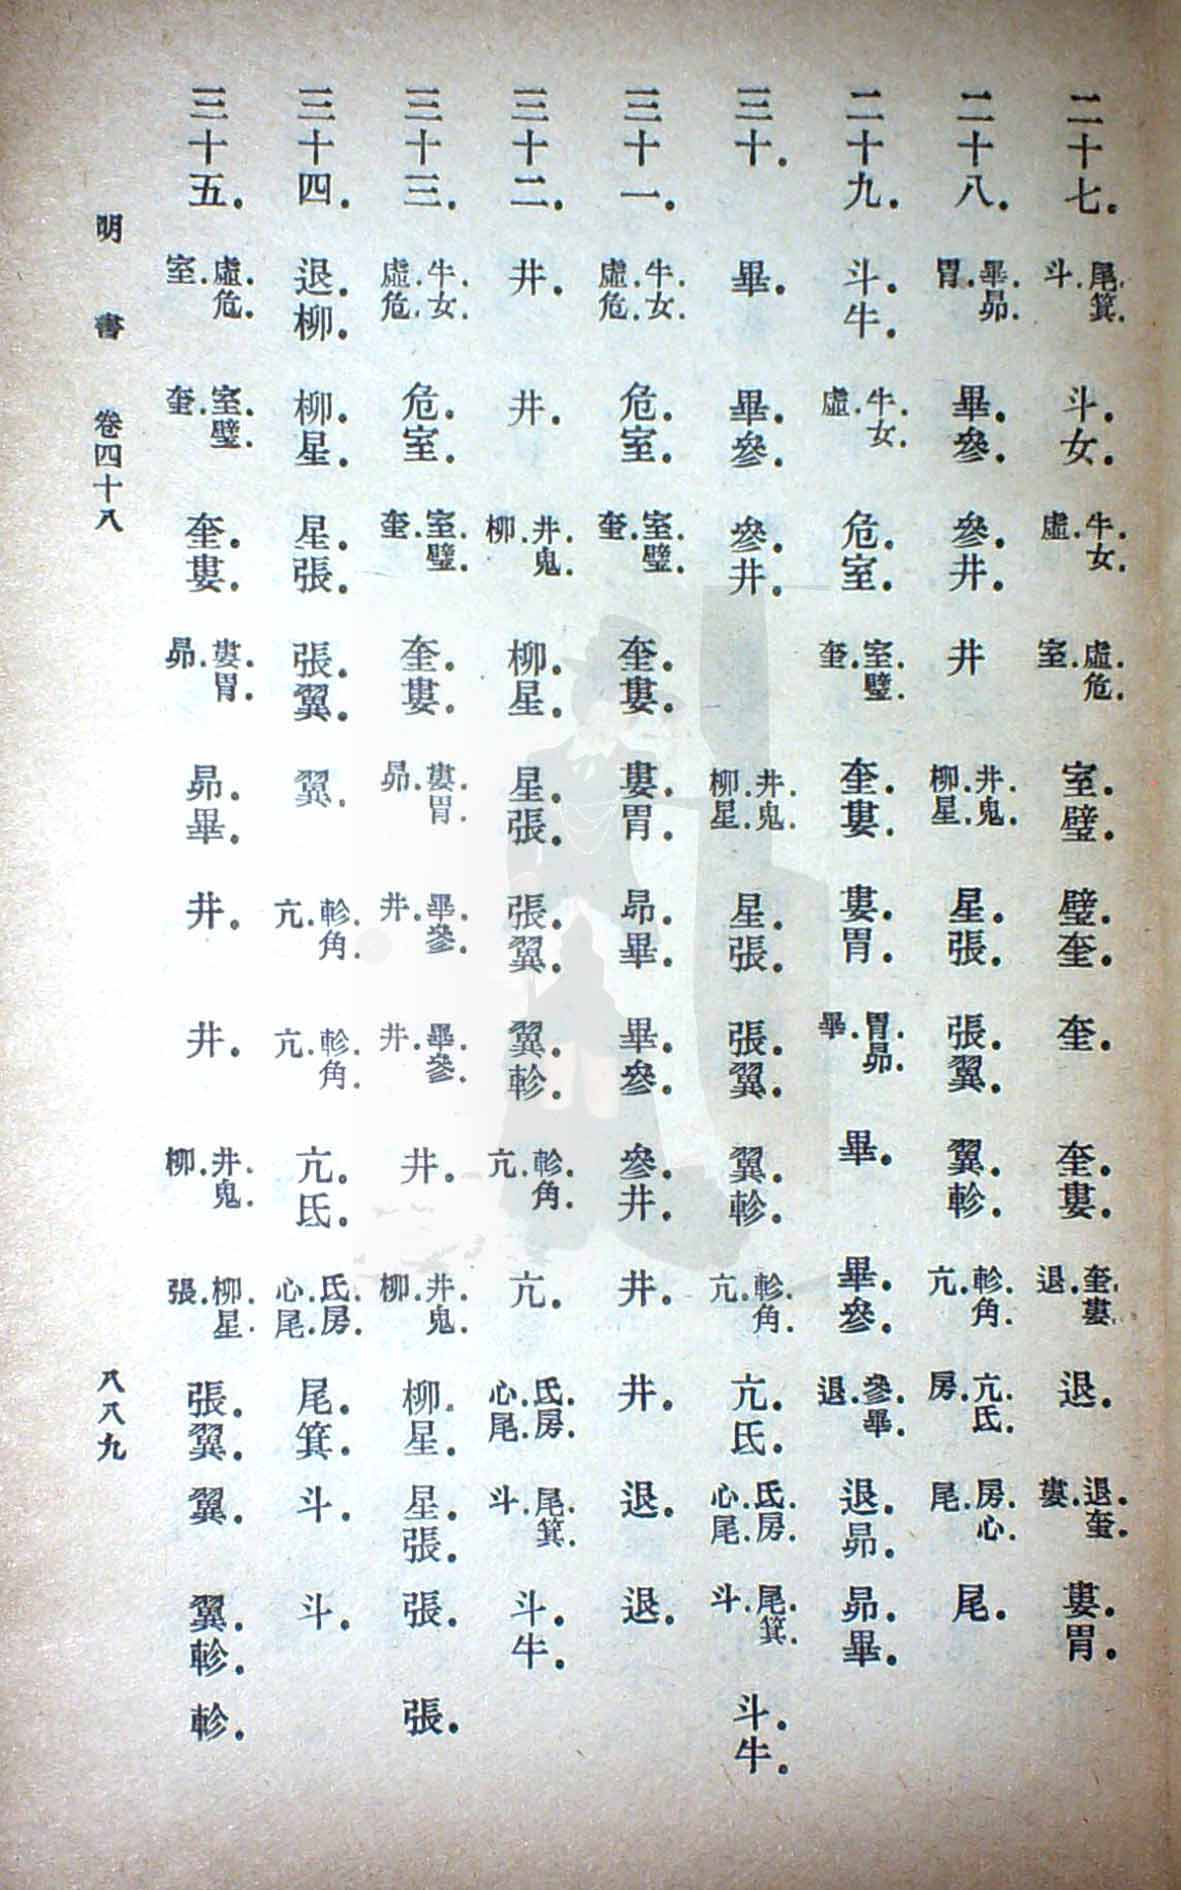 二十七。尾箕。斗。斗。女。牛女。虛。虛危。室。室。璧。璧。奎。奎。奎。婁。奎婁。退。退。退奎。婁。婁。胃。
二十八。畢昴。胃。畢。參。參。井。井井鬼。柳星。星。張。張。翼。翼。軫。軫角。亢。亢氐。房。房心。尾。尾。
二十九。斗。牛。牛女。虛。危。室。室璧。奎。奎。婁。婁。胃。胃昴。畢。畢。畢。參。參畢。退。退。昴。昴。畢。
三十。畢。畢。參。參。井。井鬼。柳星。星。張。張。翼。翼。軫。軫角。亢。亢。氐。氐房。心尾。尾箕。斗。斗。牛。
三十一。牛女。虛危。危。室。室璧。奎。奎。婁。婁。胃。昴。畢。畢。參。參。井。井。井。退。退。
三十二。井。井。井鬼。柳。柳。星。星。張。張。翼。翼。軫。軫角。亢。亢。氐房。心尾。尾箕。斗。斗。牛。
三十三。牛女。虛危。危。室。室璧。奎。奎。婁。婁胃。昴。畢參。井。畢參。井。井。井鬼。柳。柳。星。星。張。張。張。
三十四。退。柳。柳。星。星。張。張。翼。翼。軫角。亢。軫角。亢。亢。氐。氐房。心尾。尾。箕。斗。斗。
三十五。虛危。室。室璧。奎。奎。婁。婁胃。昴。昴。畢。井。井。井鬼。柳。柳星。張。張。翼。翼。翼。軫。軫。
明書 卷四十八 八八九